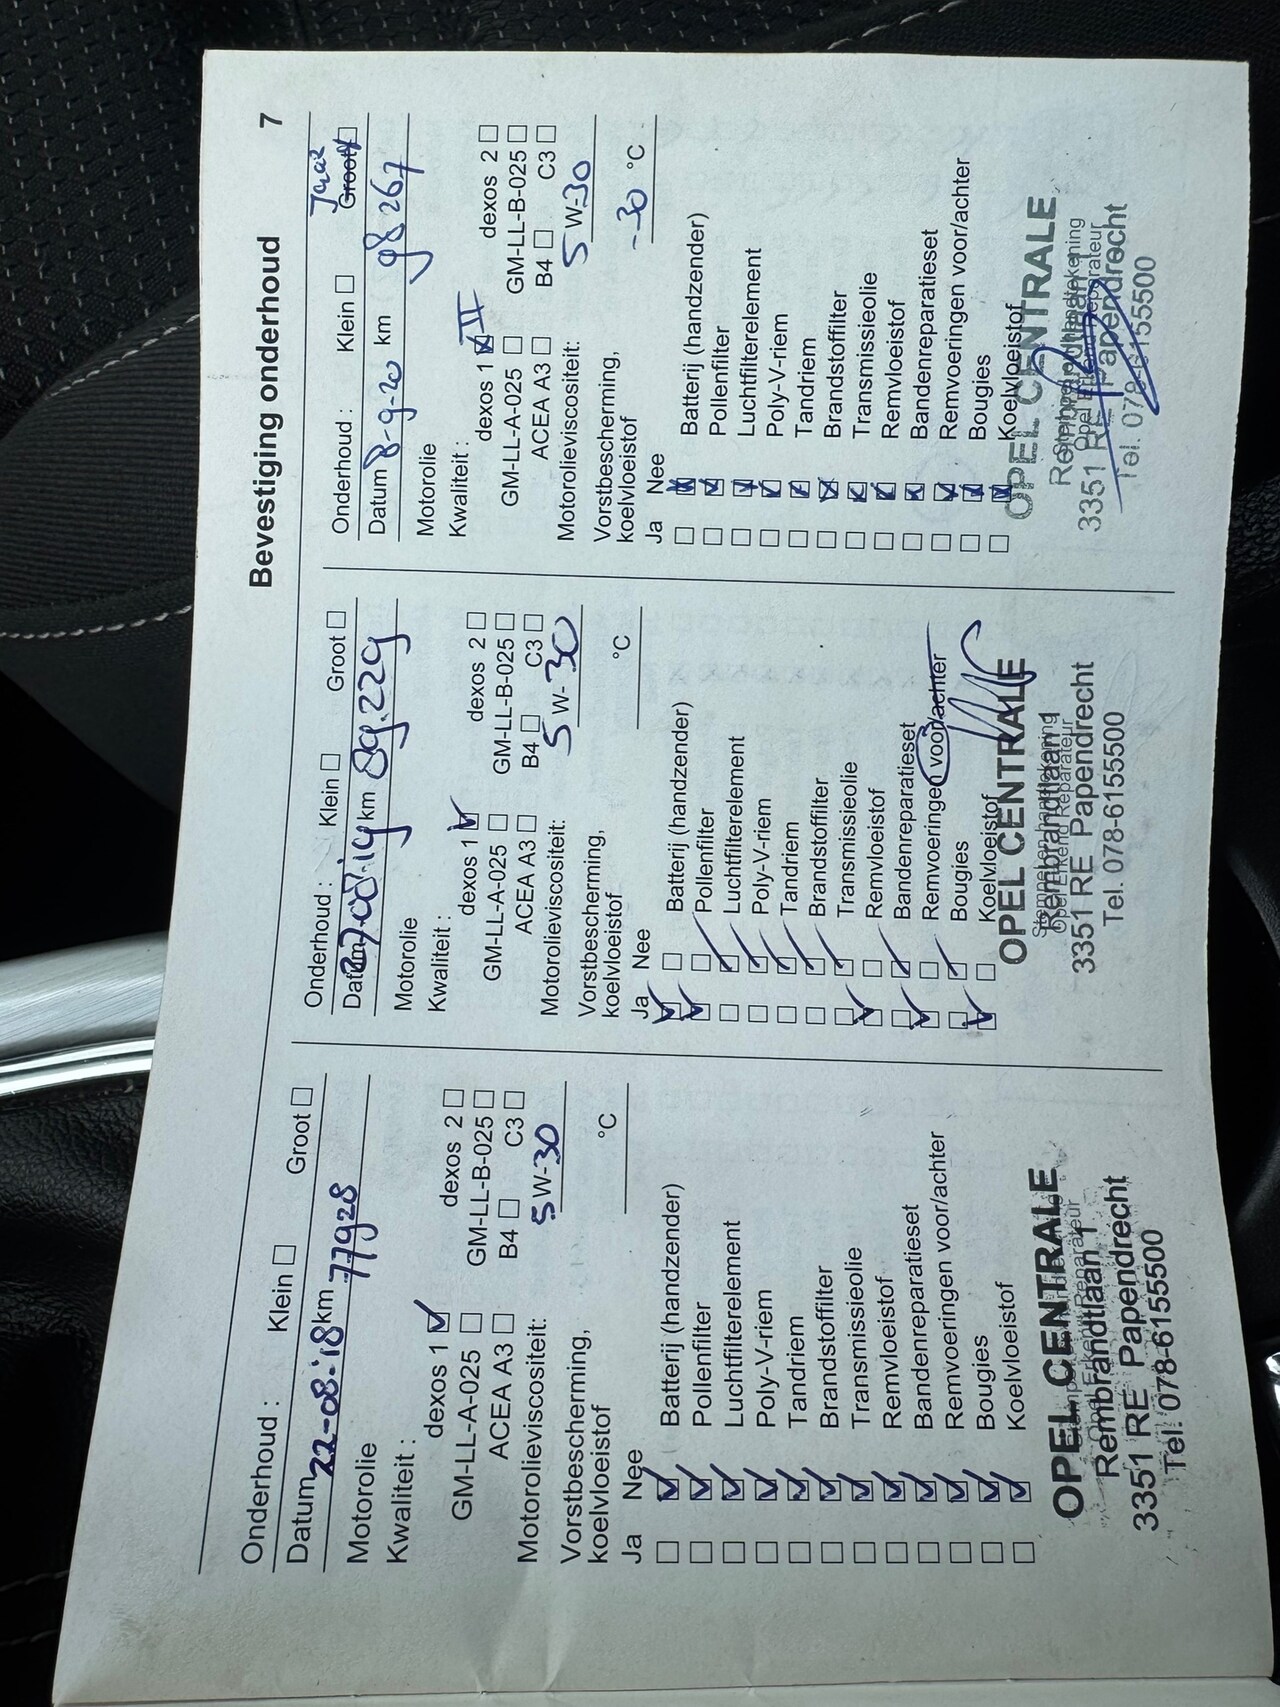 Bevestiging onderhoud 7
Onderhoud : Klein ☐ Groot ☐
Datum 22-08-'18 km 77928
Motorolie
Kwaliteit :
dexos 1 ☑ dexos 2 ☐
GM-LL-A-025 ☐ GM-LL-B-025 ☐
ACEA A3 ☐ B4 ☐ C3 ☐
Motorolieviscositeit: 5 W-30
Vorstbescherming,
koelvloeistof °C
Ja Nee
☐ ☑ Batterij (handzender)
☐ ☑ Pollenfilter
☐ ☑ Luchtfilterelement
☐ ☑ Poly-V-riem
☐ ☑ Tandriem
☐ ☑ Brandstoffilter
☐ ☑ Transmissieolie
☐ ☑ Remvloeistof
☐ ☑ Bandenreparatieset
☐ ☑ Remvoeringen voor/achter
☐ ☑ Bougies
☐ ☑ Koelvloeistof
OPEL CENTRALE
Rembrandtlaan 1
3351 RE Papendrecht
Tel. 078-6155500
Onderhoud : Klein ☐ Groot ☐
Datum km 89.229
Motorolie
Kwaliteit :
dexos 1 ☑ dexos 2 ☐
GM-LL-A-025 ☐ GM-LL-B-025 ☐
ACEA A3 ☐ B4 ☐ C3 ☐
Motorolieviscositeit: 5 W-30
Vorstbescherming,
koelvloeistof °C
Ja Nee
☑ ☐ Batterij (handzender)
☑ ☐ Pollenfilter
☐ ☑ Luchtfilterelement
☐ ☑ Poly-V-riem
☐ ☑ Tandriem
☐ ☑ Brandstoffilter
☐ ☑ Transmissieolie
☑ ☐ Remvloeistof
☐ ☑ Bandenreparatieset
☑ ☐ Remvoeringen voor/achter
☐ ☑ Bougies
☑ ☐ Koelvloeistof
OPEL CENTRALE
Stempel en handtekening
Opel Erkend Reparateur
Rembrandtlaan 1
3351 RE Papendrecht
Tel. 078-6155500
Onderhoud : Klein ☐ Groot ☐
Datum 8-9-20 km 98267
Motorolie
Kwaliteit :
dexos 1 ☑ II dexos 2 ☐
GM-LL-A-025 ☐ GM-LL-B-025 ☐
ACEA A3 ☐ B4 ☐ C3 ☐
Motorolieviscositeit: 5 W-30
Vorstbescherming,
koelvloeistof -30 °C
Ja Nee
☐ ☑ Batterij (handzender)
☐ ☑ Pollenfilter
☐ ☑ Luchtfilterelement
☐ ☑ Poly-V-riem
☐ ☑ Tandriem
☐ ☑ Brandstoffilter
☐ ☑ Transmissieolie
☐ ☑ Remvloeistof
☐ ☑ Bandenreparatieset
☐ ☑ Remvoeringen voor/achter
☐ ☑ Bougies
☐ ☑ Koelvloeistof
OPEL CENTRALE
Stempel en handtekening
Opel Erkend Reparateur
Rembrandtlaan 1
3351 RE Papendrecht
Tel. 078-6155500